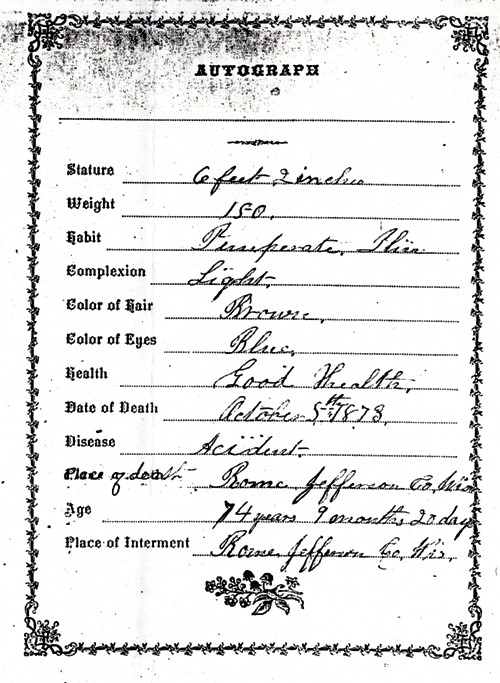 AUTOGRAPH
Stature 6 feet 2 inches
Weight 150.
Habit Temperate. Slim
Complexion Light.
Color of Hair Brown.
Color of Eyes Blue.
Health Good Health.
Date of Death October 5th 1878.
Disease Acident.
Place of death Rome Jefferson Co, Wis
Age 74 years 9 months 20 day
Place of Interment Rome Jefferson Co, Wis.